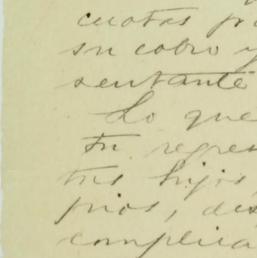 cuotas pr
su cobro y
sentante
Lo que
En regres
tus hijos
prios, des
complica